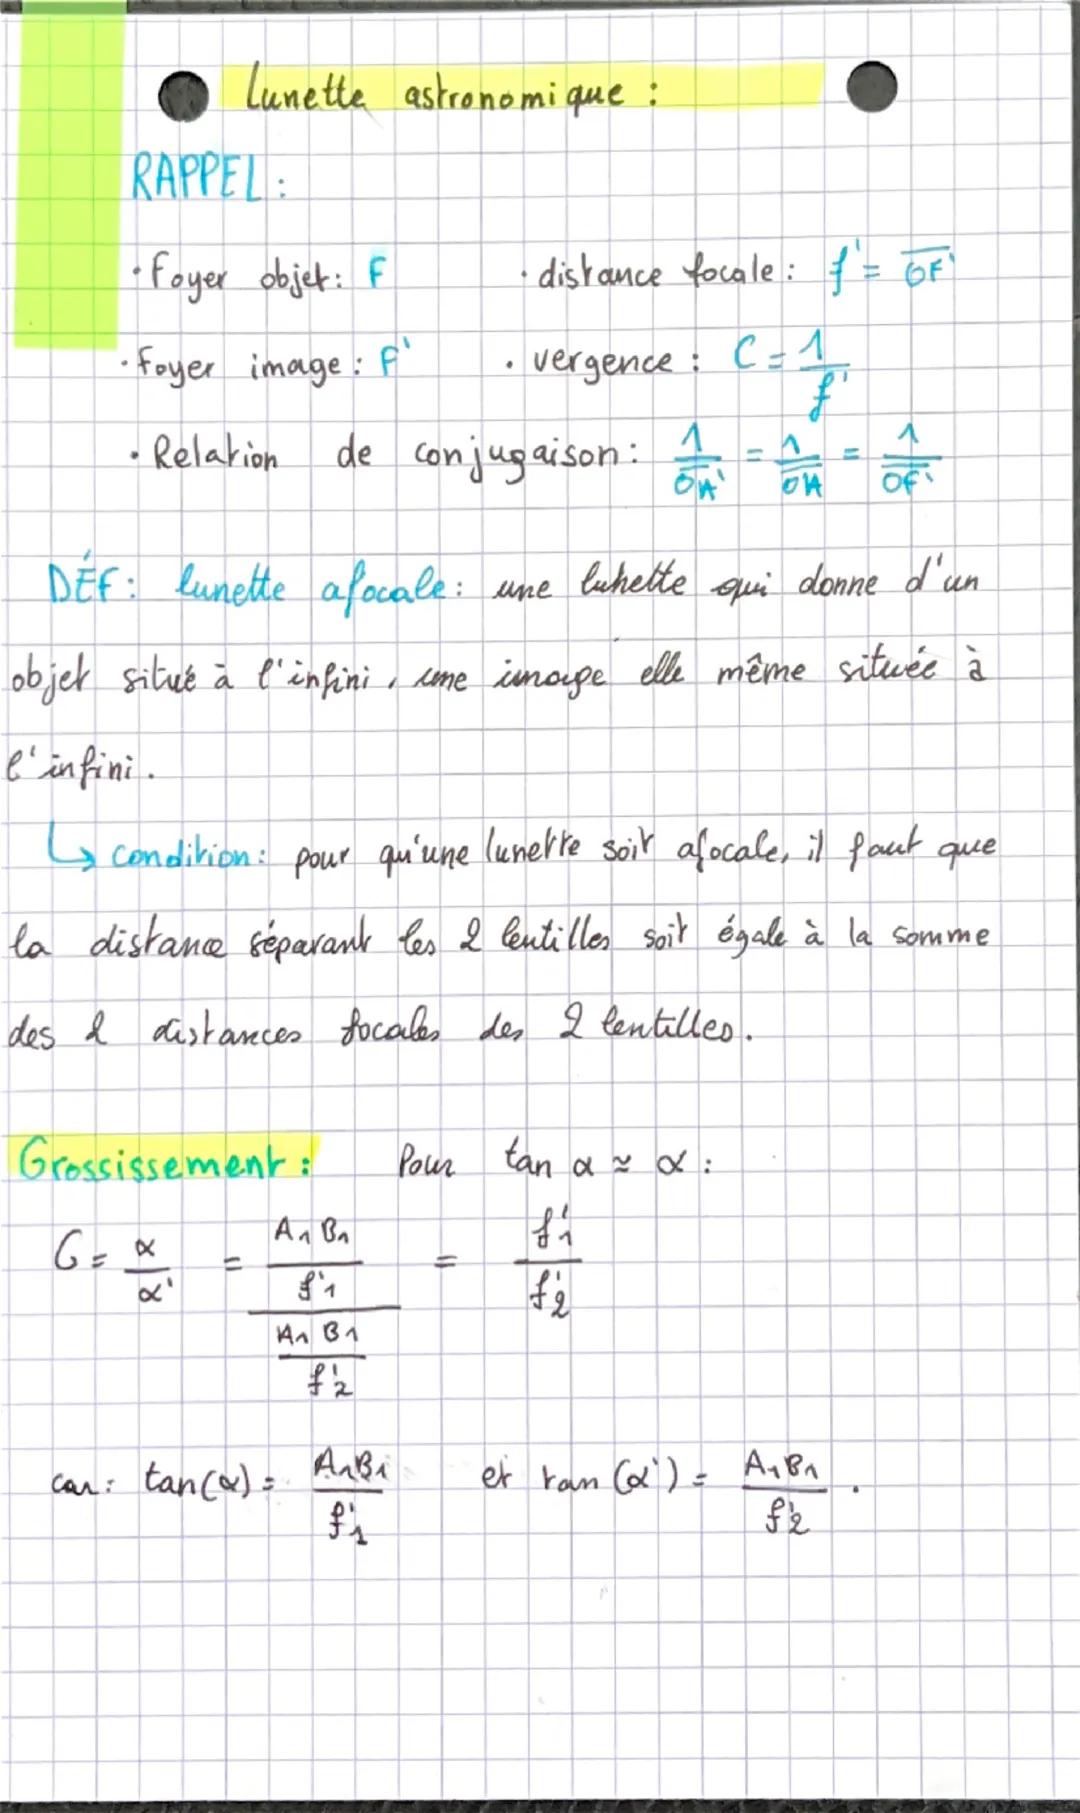 Lunette astronomique :
RAPPEL :
· Foyer objet : F · distance focale : f' = OF'
· Foyer image : F' · vergence : C = 1/f'
· Relation de conjugaison : 1/OA' = 1/OA = 1/OF'
DÉF : lunette afocale : une luhette qui donne d'un
objet situé à l'infini, une image elle même située à
l'infini.
↳ condition : pour qu'une lunette soit afocale, il faut que
la distance séparant les 2 lentilles soit égale à la somme
des 2 distances focales des 2 lentilles.
Grossissement : Pour tan α ≃ α :
G = α/α' = (A1B1/f'1)/(A1B1/f'2) = f'1/f'2
car : tan(α) = A1B1/f'1 et tan(α') = A1B1/f'2 .